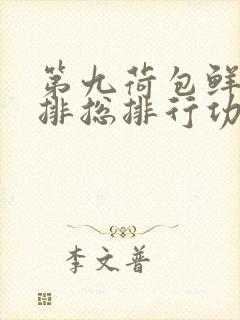 第九荷包鲜
排总排行功
李文普